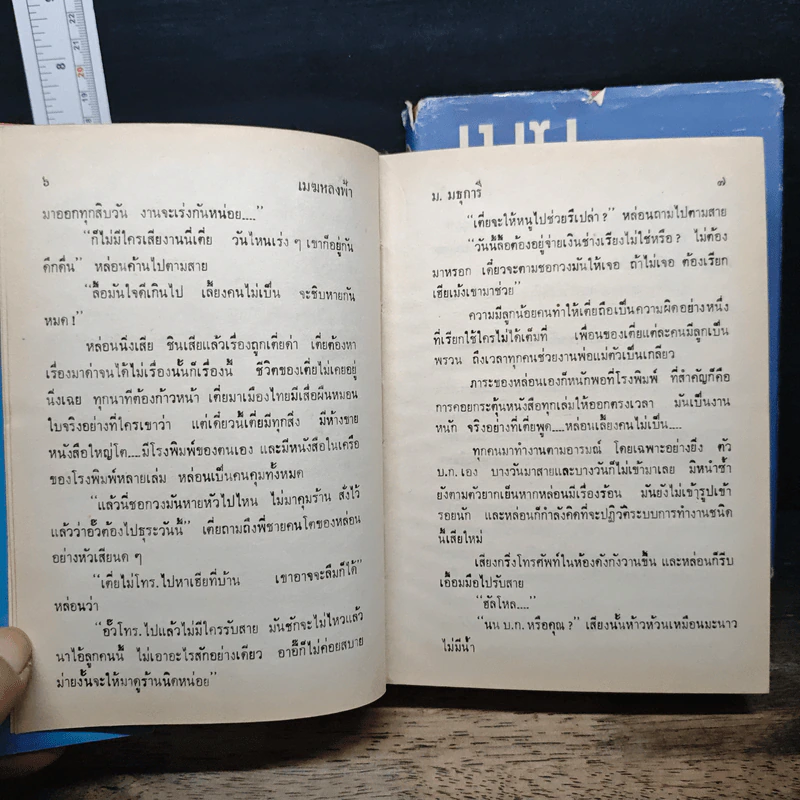 ๖ เมฆหลงฟ้า
มาออกทุกสิบวัน งานจะเร่งกันหน่อย....”
“ก็ไม่มีใครเสียงานนี่เตี่ย วันไหนเร่ง ๆ เขาก็อยู่กัน
ดึกดื่น” หล่อนค้านไปตามสาย
“ลื้อมันใจดีเกินไป เลี้ยงคนไม่เป็น จะชิบหายกัน
หมด !”
หล่อนนิ่งเสีย ชินเสียแล้วเรื่องถูกเตี่ยด่า เตี่ยต้องหา
เรื่องมาด่าจนได้ไม่เรื่องนั้นก็เรื่องนี้ ชีวิตของเตี่ยไม่เคยอยู่
นิ่งเฉย ทุกนาทีต้องก้าวหน้า เตี่ยมาเมืองไทยมีเสื่อผืนหมอน
ใบจริงอย่างที่ใครเขาว่า แต่เดี๋ยวนี้เตี่ยมีทุกสิ่ง มีห้างขาย
หนังสือใหญ่โต....มีโรงพิมพ์ของตนเอง และมีหนังสือในเครือ
ของโรงพิมพ์หลายเล่ม หล่อนเป็นคนคุมทั้งหมด
“แล้วนี่ชอกวงมันหายหัวไปไหน ไม่มาคุมร้าน สั่งไว้
แล้วว่าอั๊วต้องไปธุระวันนี้” เตี่ยถามถึงพี่ชายคนโตของหล่อน
อย่างหัวเสียนด ๆ
“เตี่ยไม่โทร. ไปหาเฮียที่บ้าน เขาอาจจะลืมก็ได้”
หล่อนว่า
“อั๊วโทร. ไปแล้วไม่มีใครรับสาย มันชักจะไม่ไหวแล้ว
นาไอ้ลูกคนนี้ ไม่เอาอะไรสักอย่างเดียว อาอี๊ก็ไม่ค่อยสบาย
ม่ายงั้นจะให้มาดูร้านนิดหน่อย”
ม. มธุการี ๗
“เตี่ยจะให้หนูไปช่วยรึเปล่า ?” หล่อนถามไปตามสาย
“วันนี้ลื้อต้องอยู่จ่ายเงินช่างเรียงไม่ใช่หรือ ? ไม่ต้อง
มาหรอก เดี๋ยวจะตามชอกวงมันให้เจอ ถ้าไม่เจอ ต้องเรียก
เฮียเม้งเขามาช่วย”
ความมีลูกน้อยคนทำให้เตี่ยถือเป็นความผิดอย่างหนึ่ง
ที่เรียกใช้ใครไม่ได้เต็มที่ เพื่อนของเตี่ยแต่ละคนมีลูกเป็น
พรวน ถึงเวลาทุกคนช่วยงานพ่อแม่ตัวเป็นเกลียว
ภาระของหล่อนเองก็หนักพอที่โรงพิมพ์ ที่สำคัญก็คือ
การคอยกระตุ้นหนังสือทุกเล่มให้ออกตรงเวลา มันเป็นงาน
หนัก จริงอย่างที่เตี่ยพูด....หล่อนเลี้ยงคนไม่เป็น....
ทุกคนมาทำงานตามอารมณ์ โดยเฉพาะอย่างยิ่ง ตัว
บ.ก. เอง บางวันมาสายและบางวันก็ไม่เข้ามาเลย มิหนำซ้ำ
ยังตามตัวยากเย็นหากหล่อนมีเรื่องร้อน มันยังไม่เข้ารูปเข้า
รอยนัก และหล่อนก็กำลังคิดที่จะปฏิวัติระบบการทำงานชนิด
นี้เสียใหม่
เสียงกริ่งโทรศัพท์ในห้องดังกังวานขึ้น และหล่อนก็รีบ
เอื้อมมือไปรับสาย
“ฮัลโหล....”
“นน บ.ก. หรือคุณ ?” เสียงนั้นห้าวห้วนเหมือนมะนาว
ไม่มีน้ำ